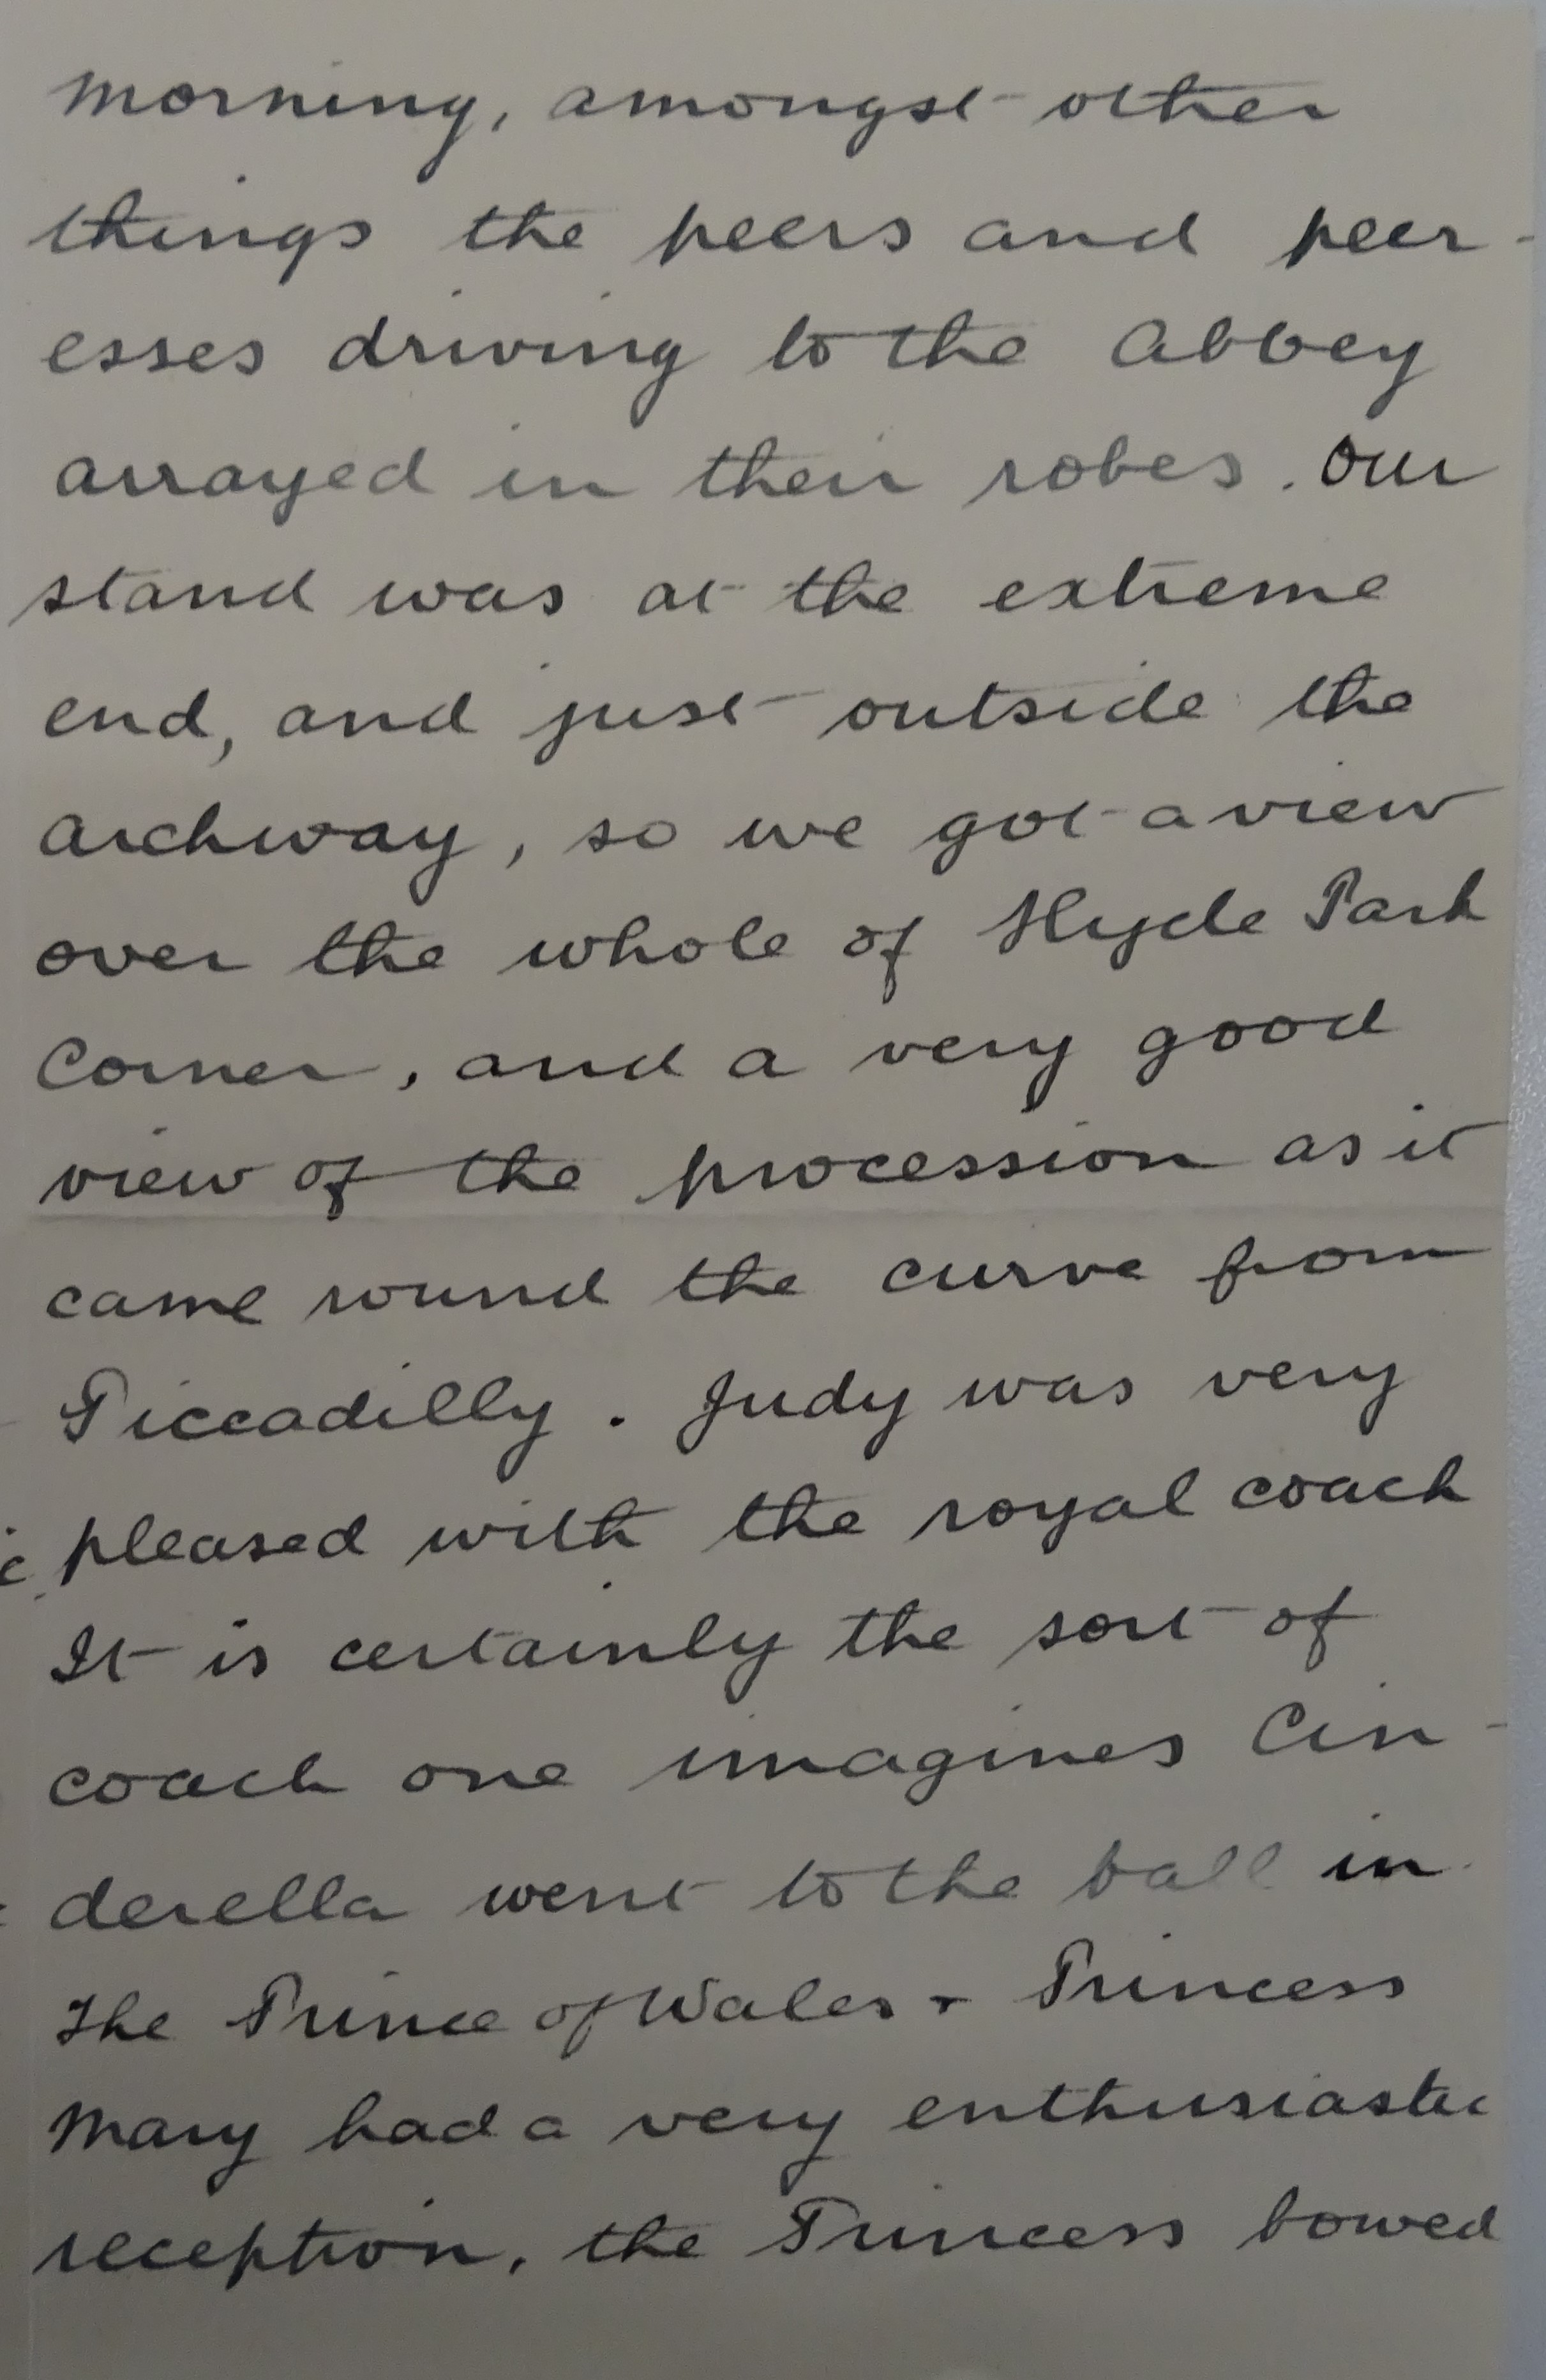 morning, amongst other
things the peers and peer-
esses driving to the Abbey
arrayed in their robes. Our
stand was at the extreme
end, and just outside the
archway, so we got a view
over the whole of Hyde Park
Corner, and a very good
view of the procession as it
came round the curve from
Piccadilly. Judy was very
pleased with the royal coach
It is certainly the sort of
coach one imagines Cin-
derella went to the ball in.
The Prince of Wales + Princess
Mary had a very enthusiastic
reception, the Princess bowed